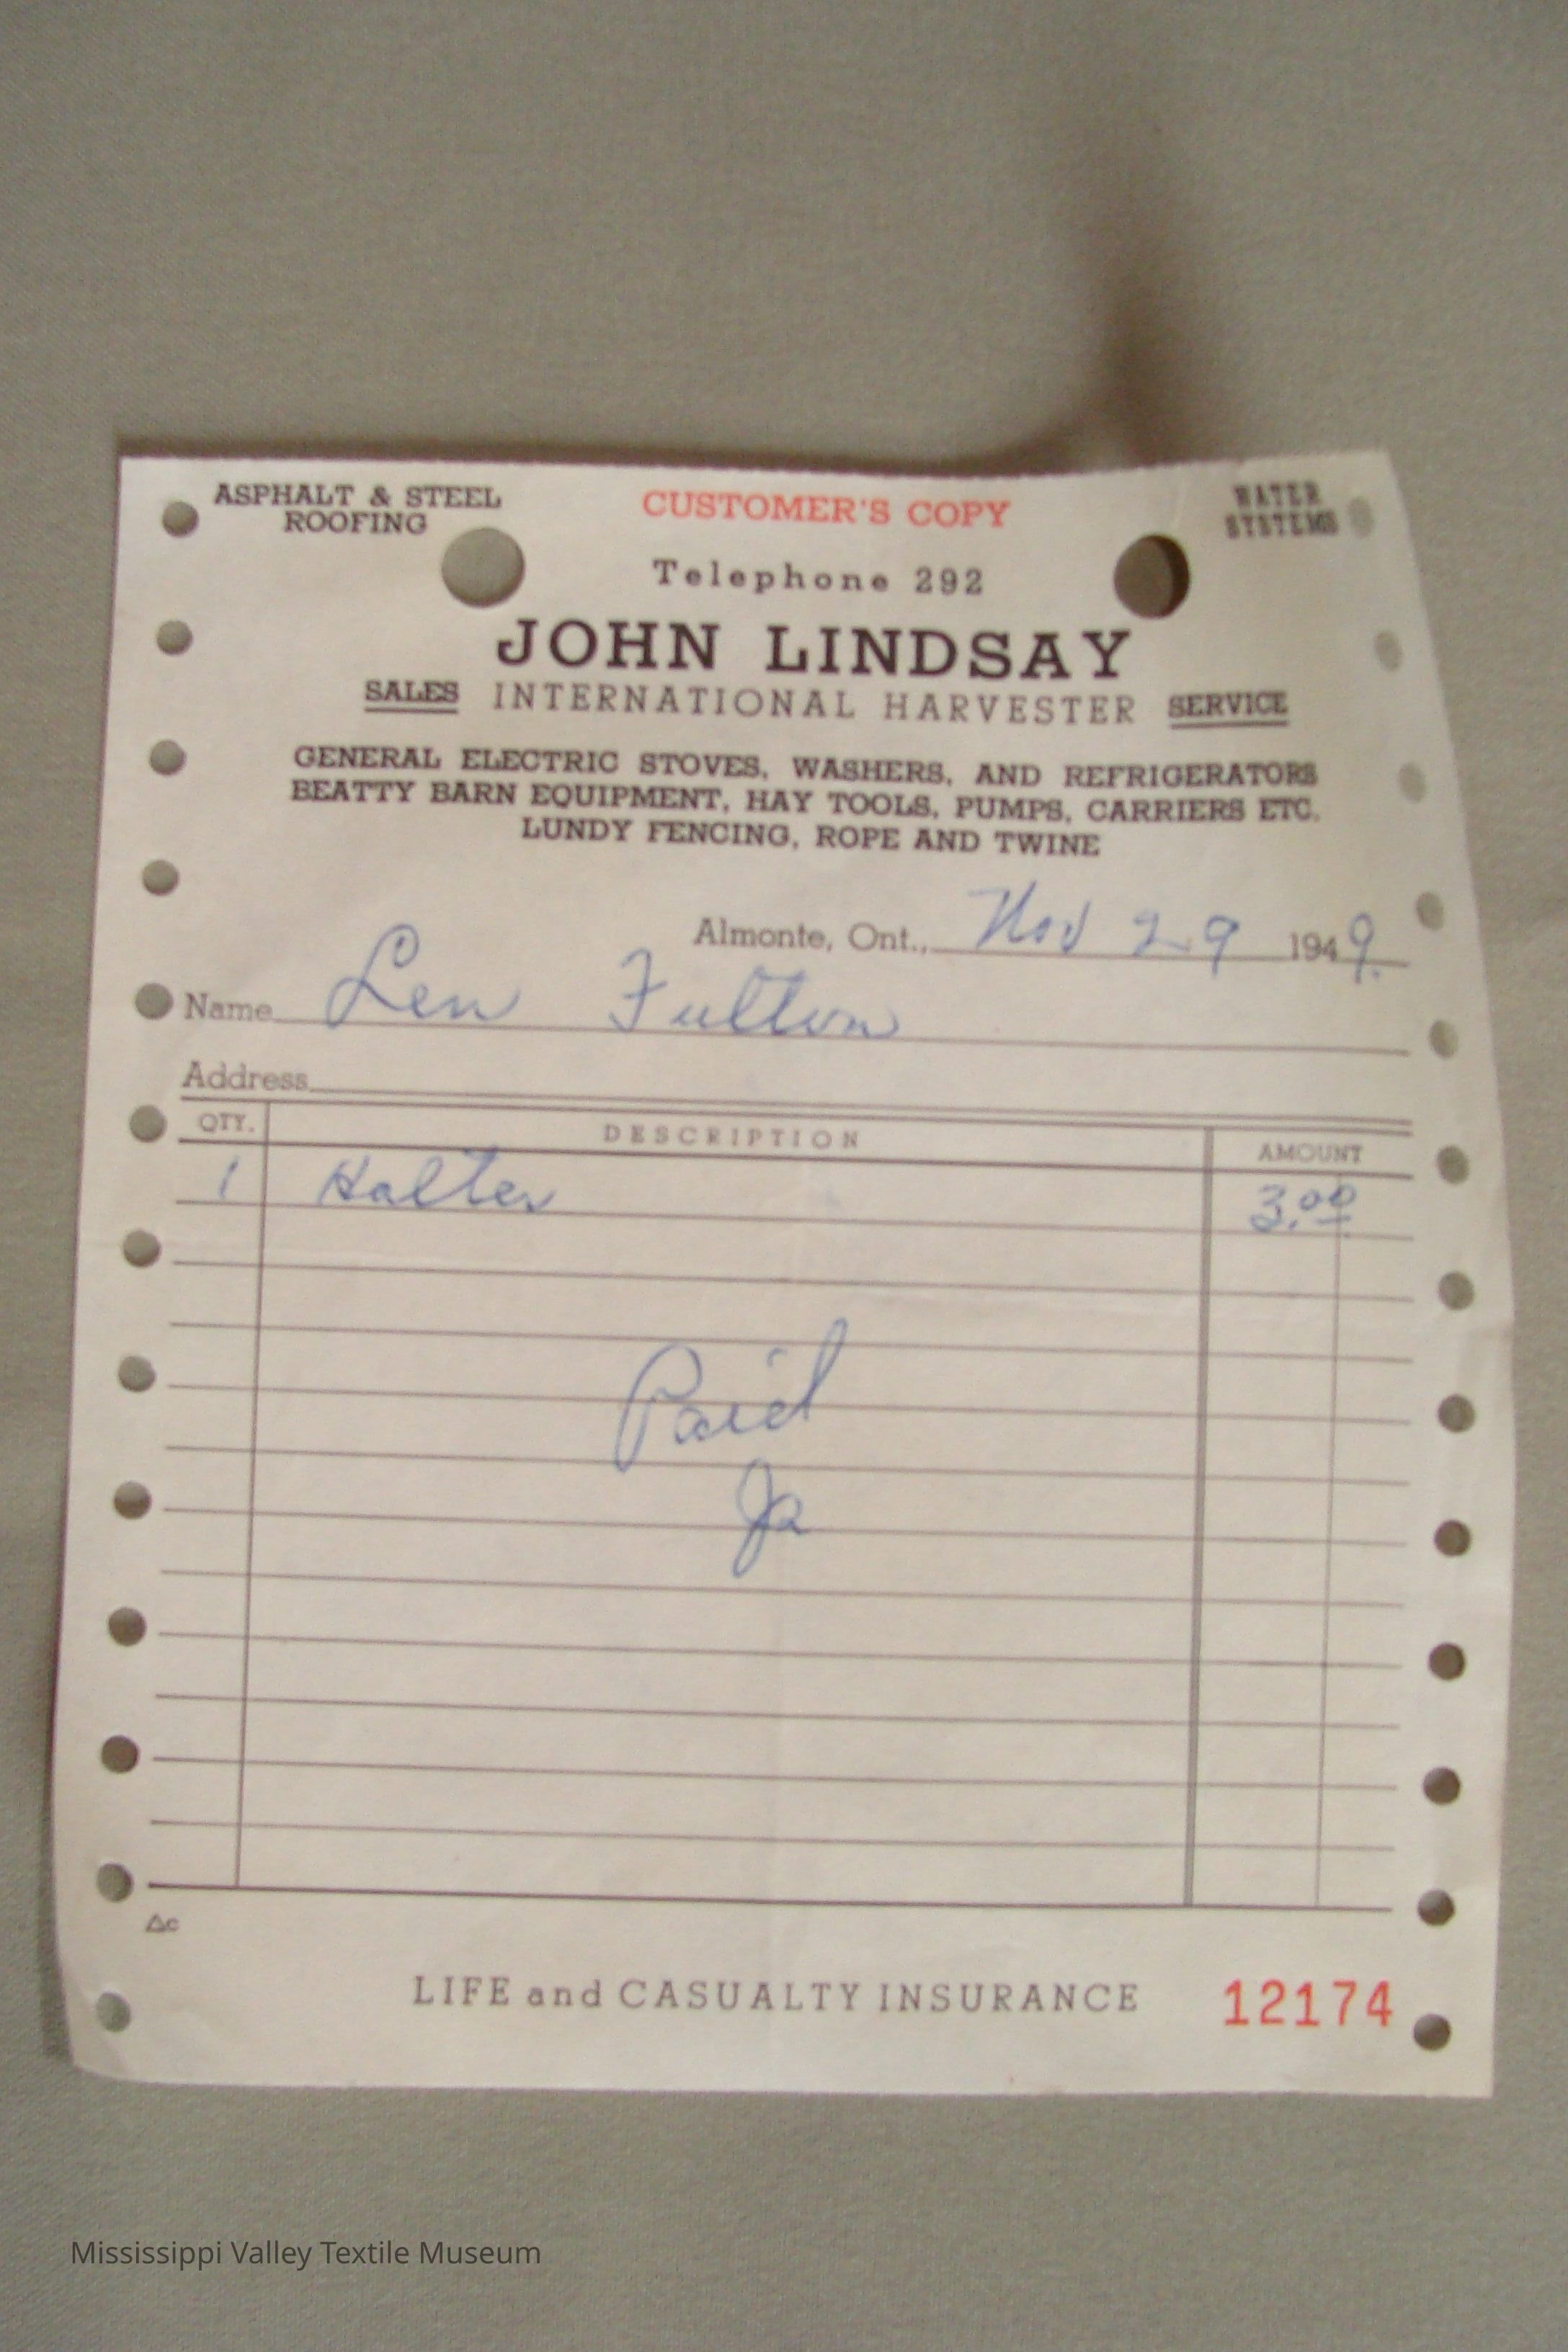 ASPHALT & STEEL
ROOFING
CUSTOMER'S COPY
WATER
SYSTEMS
Telephone 292
JOHN LINDSAY
SALES INTERNATIONAL HARVESTER SERVICE
GENERAL ELECTRIC STOVES, WASHERS, AND REFRIGERATORS
BEATTY BARN EQUIPMENT, HAY TOOLS, PUMPS, CARRIERS ETC.
LUNDY FENCING, ROPE AND TWINE
Almonte, Ont., Nov 29 1949.
Name Len Fulton
Address
QTY. DESCRIPTION AMOUNT
1 Halter 3.00
Paid
LIFE and CASUALTY INSURANCE 12174
Mississippi Valley Textile Museum